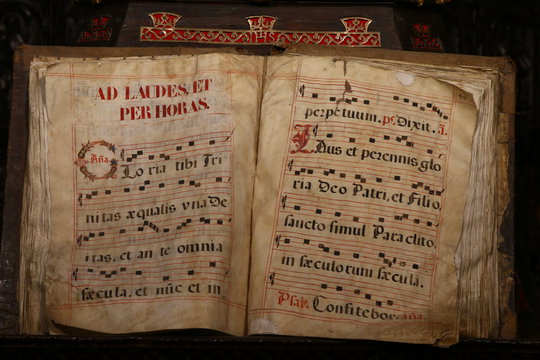 IHS
AD LAUDES, ET
PER HORAS.
Aña
Gloria tibi Tri
nitas æqualis vna De
itas, et an te omnia
sæcula, et nũc et in
perpetuum. ps. Dixit. ã.
Laus et perennis gló
ria Deo Patri, et Filio,
sancto simul Paraclito,
in sæculorum sæcula.
Psal. Confitebor. aña.